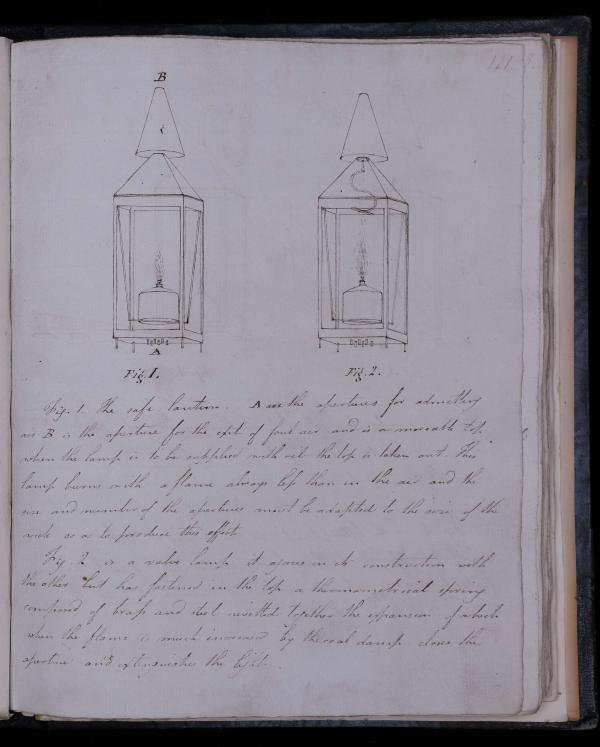 111
B
A
Fig. 1.
Fig. 2.
Fig. 1. The safe lantern. A are the apertures for admitting
air B is the aperture for the exit of foul air and is a moveable top.
when the lamp is to be supplied with oil the top is taken out. This
lamp burns with a flame always less than in the air and the
size and number of the apertures must be adapted to the size of the
wick so as to produce this effect
Fig. 2 is a valve lamp it agrees in its construction with
the other but has fastened in the top a thermometrical spring
composed of brass and steel rivetted together the expansion of which
when the flame is much increased by the coal damp closes the
aperture and extinguishes the light.